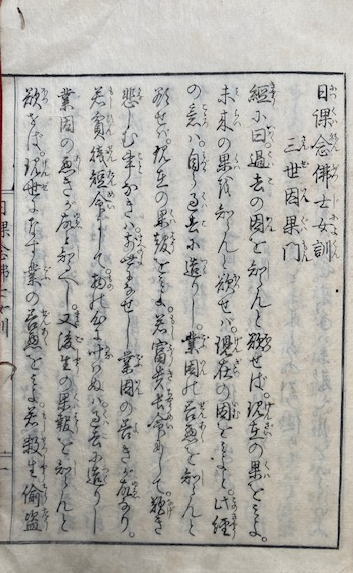 日課念佛士女訓
三世因果門
經に曰。過去の因を知んと欲せば。現在の果をみよ。
未来の果を知んと欲せバ。現在の因をみよと。此經
の意ハ。自ら過去に造りし。業因の善惡を知んと
欲せバ。現在の果をみよ。若富貴長命にして。歎き
悲しむ事なきハ。前世になせし業因の善きが故なり。
若貧賤短命にして。物の心に叶ハぬハ過去に造りし
業因の惡きが故と知べし。又後生の果報を知んと
欲せば。現世になす業の善惡をみよ若殺生偸盗
日課念佛士女訓
一